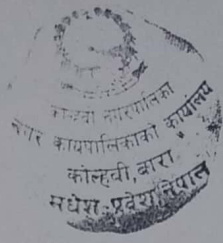 कोल्हवी नगरपालिका
नगर कार्यपालिकाको कार्यालय
कोल्हवी, बारा
मधेश प्रदेश, नेपाल